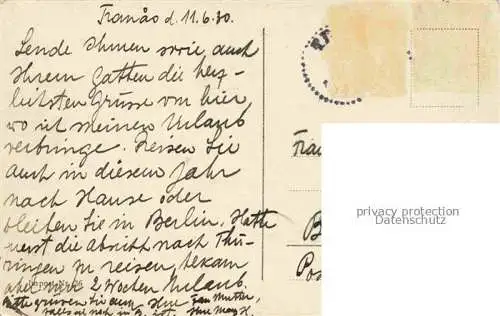 Tranås d. 11.6.30.
Sende Ihnen sowie auch
Ihrem Gatten die herz-
lichsten Grüsse von hier
wo ich meinen Urlaub
verbringe. Reisen Sie
auch in diesem Jahr
nach Hause oder
bleiben Sie in Berlin. Hatte
erst die Absicht nach Thü-
ringen zu reisen, bekam
aber nur 2 Wochen Urlaub.
Bitte grüssen Sie auch Ihre Frau Mutter,
falls sie noch in
Frau
B
Pos
privacy protection
Datenschutz